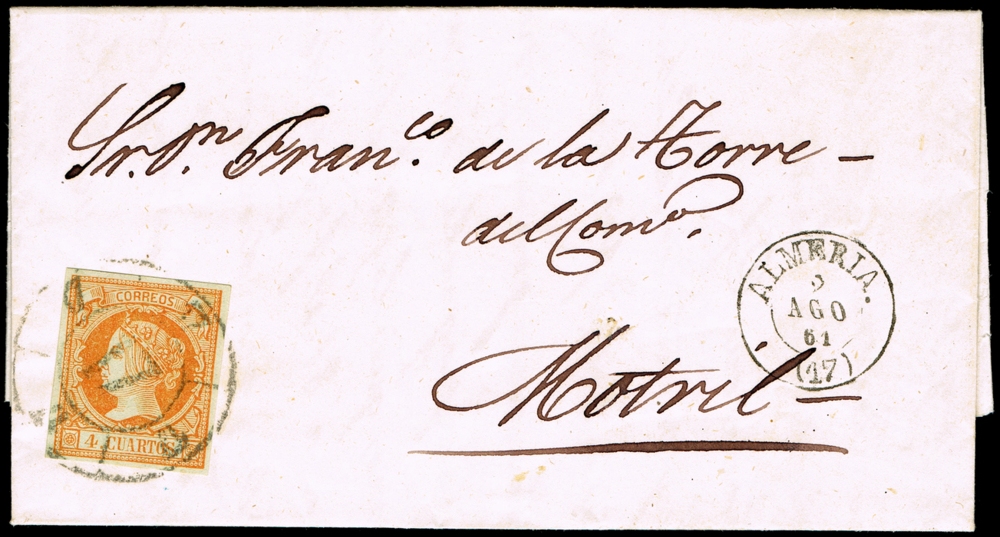 Sr. Dn. Franco. de la Torre –
del Como.
Motril –
ALMERIA.
3
AGO
61
(17)
CORREOS
4 CUARTOS